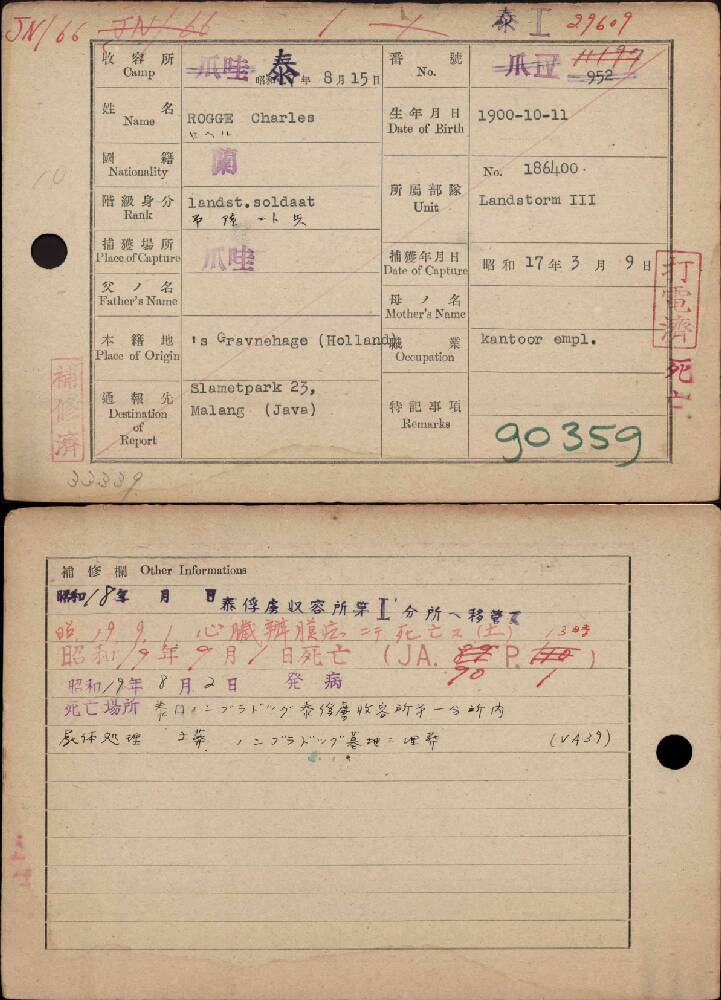 JN/66 JN/66 泰 I 29609
收容所 Camp 爪哇 泰 昭和 年 8月15日 番號 No. 爪Ⅳ 11197 952
姓名 Name ROGGE Charles 生年月日 Date of Birth 1900-10-11
國籍 Nationality 蘭 所屬部隊 Unit No. 186400. Landstorm III
階級身分 Rank landst.soldaat
捕獲場所 Place of Capture 爪哇 捕獲年月日 Date of Capture 昭和 17年 3月 9日
父ノ名 Father's Name 母ノ名 Mother's Name
本籍地 Place of Origin 's Gravnehage (Holland) 職業 Occupation kantoor empl.
通報先 Destination of Report Slametpark 23, Malang (Java) 特記事項 Remarks 90359
打電濟
死亡
補修濟
33339
10
補修欄 Other Informations
昭和18年 月 日 泰俘虜収容所第I分所ヘ移管ス
昭 19 9. 1 心臓瓣膜症ニテ死亡ス(土)
昭和19年9月1日死亡 (JA. 90 P. 1)
昭和19年8月2日 発病
死亡場所 泰 ノンプラドック泰俘虜収容所第一分所内
屍体処理 土葬 ノンプラドック墓地ニ埋葬 (VA39)